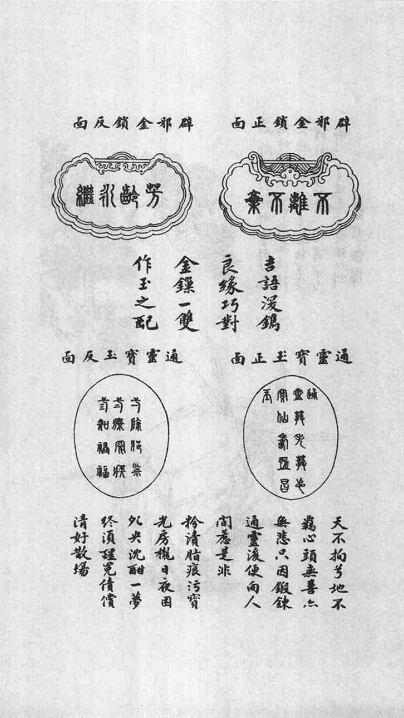 辟邪金鎖正面
不離不棄
辟邪金鎖反面
芳齡永繼
吉語深鐫
良緣巧對
金鏁一雙
作玉之配
通靈寶玉正面
通
靈莫失莫忘
寶仙壽恆昌
玉
通靈寶玉反面
一除邪祟
二療冤疾
三知禍福
天不拘兮地不
羈心頭無喜亦
無悲只因鍛鍊
通靈後便向人
間惹是非
粉漬脂痕污寶
光房櫳日夜困
夗央沈酣一夢
終須醒冤債償
清好散場